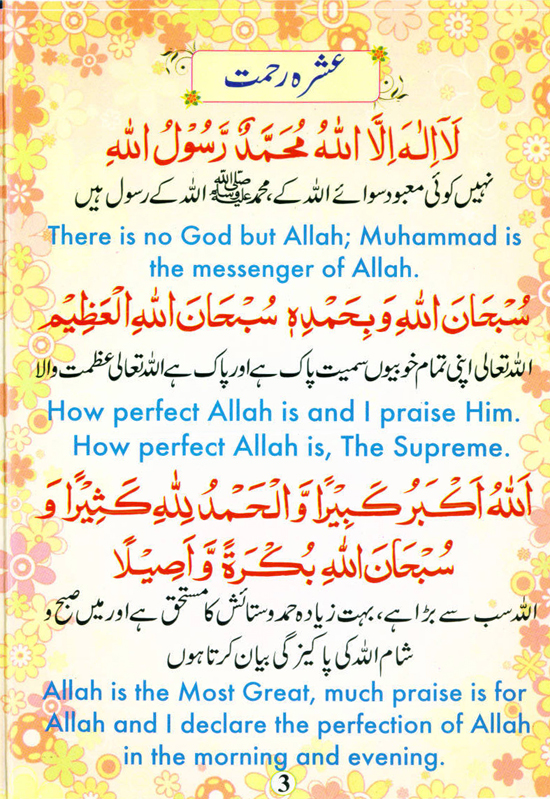 عشرہ رحمت
لَآ اِلٰهَ اِلَّا اللهُ مُحَمَّدٌ رَّسُوْلُ اللهِ
نہیں کوئی معبود سوائے اللہ کے، محمد ﷺ اللہ کے رسول ہیں
There is no God but Allah; Muhammad is
the messenger of Allah.
سُبْحَانَ اللهِ وَ بِحَمْدِهٖ سُبْحَانَ اللهِ الْعَظِيْمِ
اللہ تعالی اپنی تمام خوبیوں سمیت پاک ہے اور پاک ہے اللہ تعالی عظمت والا
How perfect Allah is and I praise Him.
How perfect Allah is, The Supreme.
اَللهُ اَكْبَرُ كَبِيْرًا وَّالْحَمْدُ لِلّٰهِ كَثِيْرًا وَ
سُبْحَانَ اللهِ بُكْرَةً وَّ اَصِيْلًا
اللہ سب سے بڑا ہے، بہت زیادہ حمد وستائش کا مستحق ہے اور میں صبح و
شام اللہ کی پاکیزگی بیان کرتا ہوں
Allah is the Most Great, much praise is for
Allah and I declare the perfection of Allah
in the morning and evening.
3